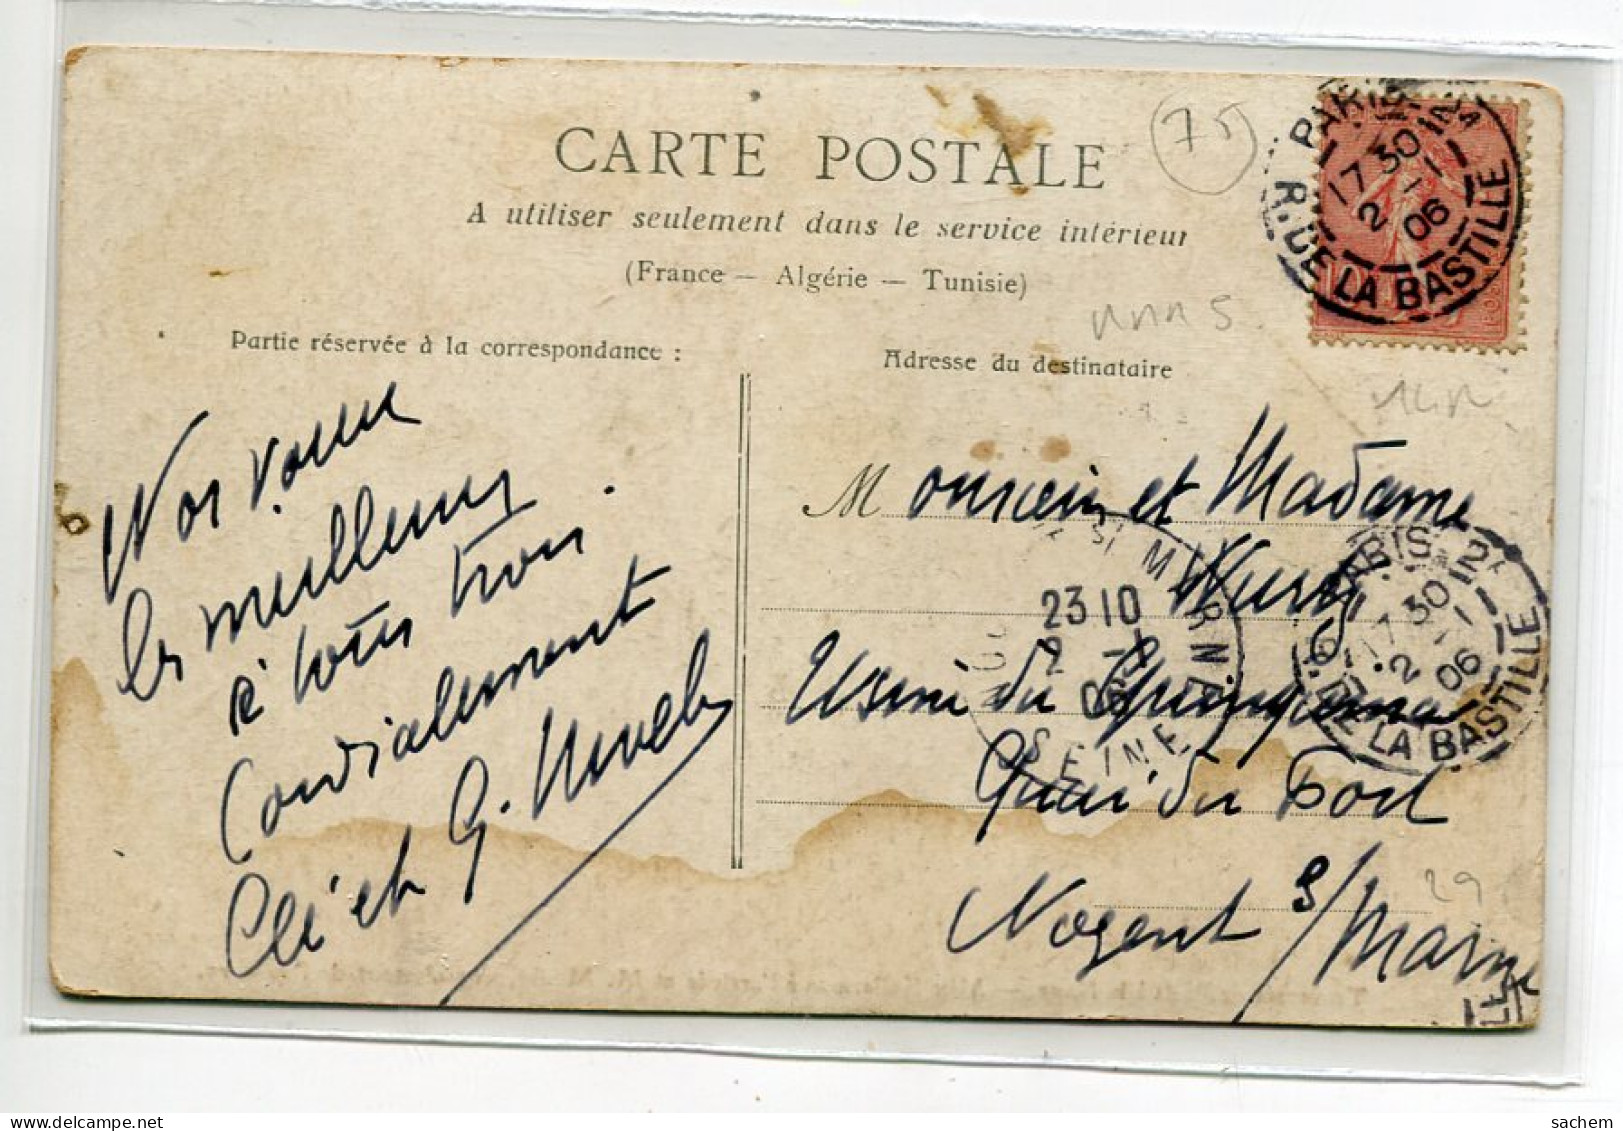 CARTE POSTALE
A utiliser seulement dans le service intérieur
(France — Algérie — Tunisie)
75
PARIS
17 30
2 - 1
06
R. DE LA BASTILLE
Partie réservée à la correspondance :
Adresse du destinataire
Nos vœux
les meilleurs
à tous trois.
Cordialement
Clé et G.
Monsieur et Madame
Usine du
Quai du Port
Nogent s/Marne
MARNE
23 10
2
SEINE
PARIS 12
17 30
2 - 1
06
DE LA BASTILLE
29
sachem